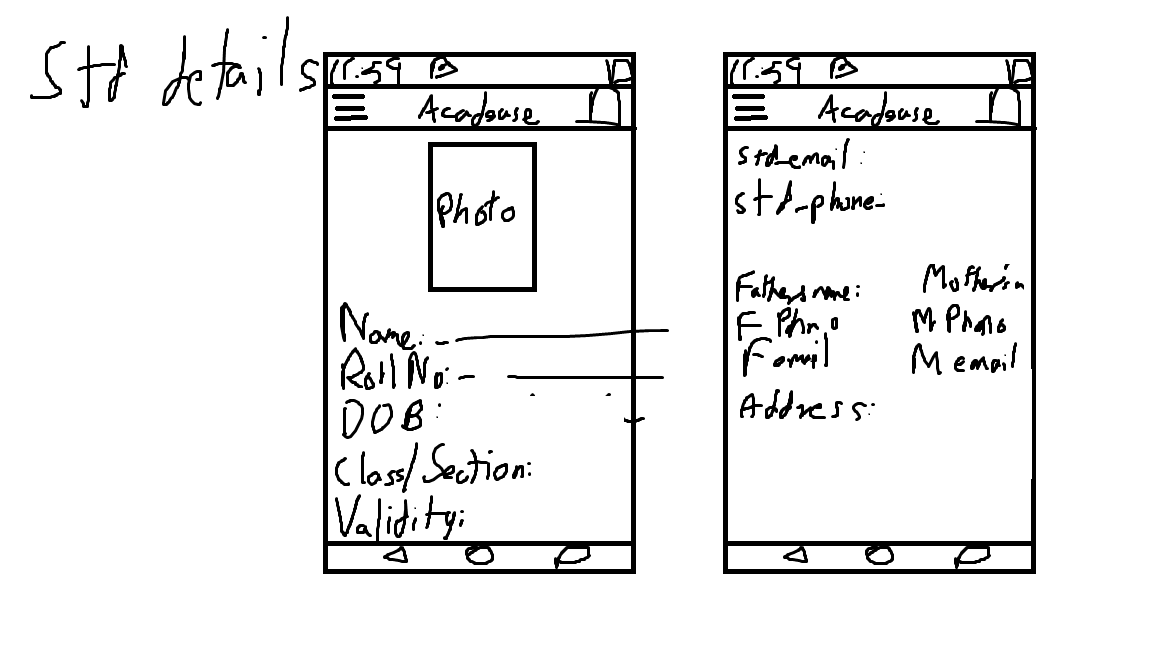 Std details
11:59 B
Acadbase
Photo
Name:
Roll No:
DOB:
Class/Section:
Validity:
11:59 B
Acadbase
std_email:
std_phone-
Fathers name: Mother's n
F Ph n,o M Ph no
F email M email
Address: